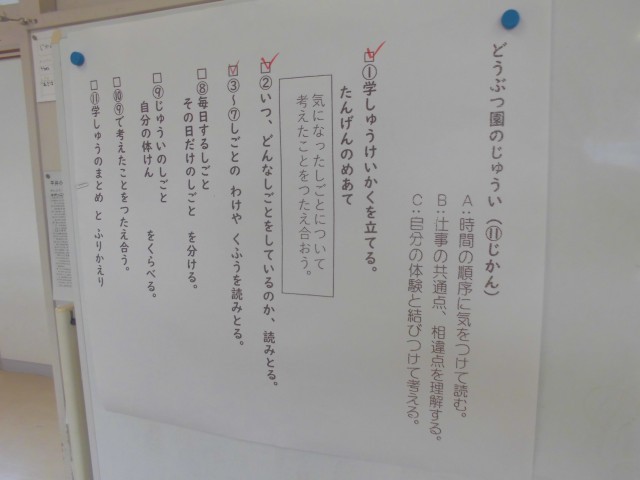 どうぶつ園のじゅうい（⑪じかん）
A：時間の順序に気をつけて読む。
B：仕事の共通点、相違点を理解する。
C：自分の体験と結びつけて考える。
☑①学しゅうけいかくを立てる。
たんげんのめあて
気になったしごとについて
考えたことをつたえ合おう。
☑②いつ、どんなしごとをしているのか、読みとる。
☑③～⑦しごとの わけや くふうを読みとる。
□⑧毎日するしごと
その日だけのしごと を分ける。
□⑨じゅういのしごと
自分の体けん をくらべる。
□⑩⑨で考えたことをつたえ合う。
□⑪学しゅうのまとめ と ふりかえり